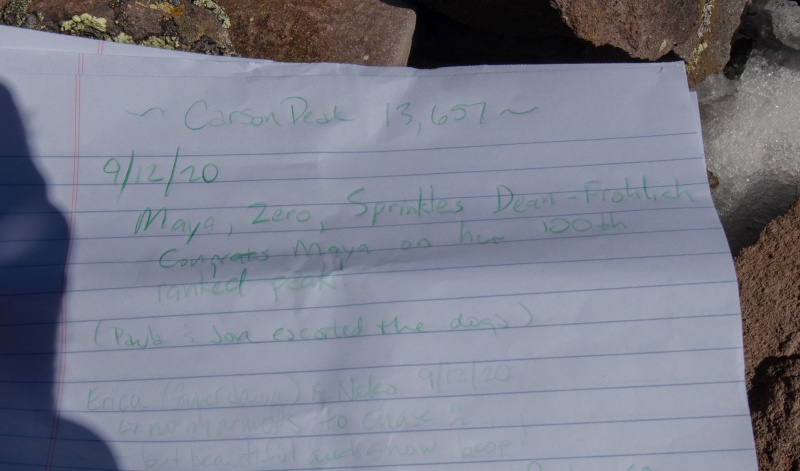 ~ Carson Peak 13,657 ~
9/12/20
Maya, Zero, Sprinkles Dean-Frohlich
Congrats Maya on her 100th
ranked peak!
(Paula & Jon escorted the dogs)
Erica & Neko 9/13/20
no marmots to chase
but beautiful and snow poop!